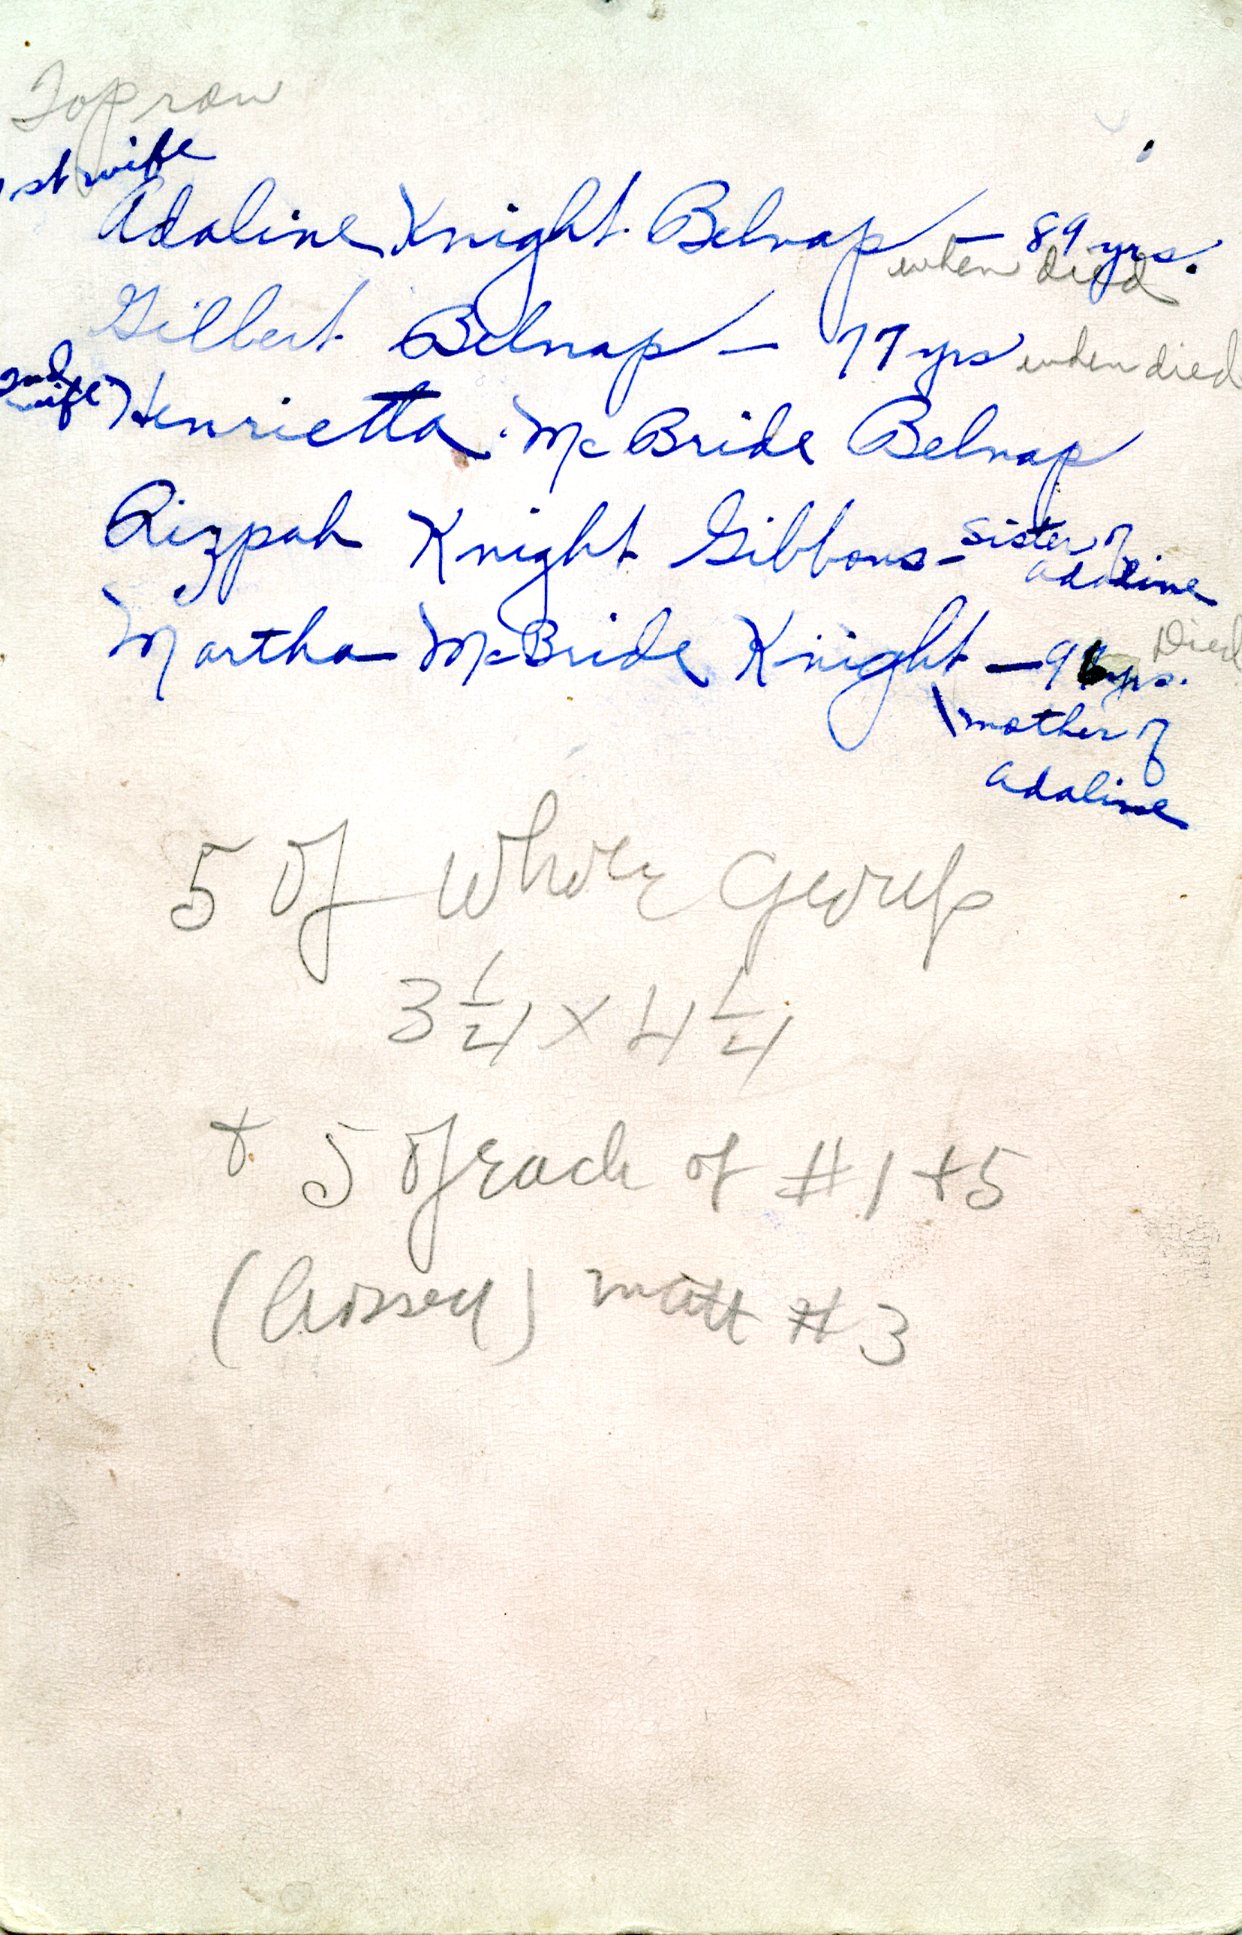 Top row
1st wife
Adaline Knight Belnap – 89 yrs.
when died
Gilbert Belnap – 77 yrs when died
2nd wife
Henrietta McBride Belnap
Rizpah Knight Gibbons – sister of
Adaline
Martha McBride Knight – 96 yrs. Died
mother of
Adaline
5 of Whole Group
3 1/4 x 4 1/4
+ 5 of each of #1 + 5
matt #3